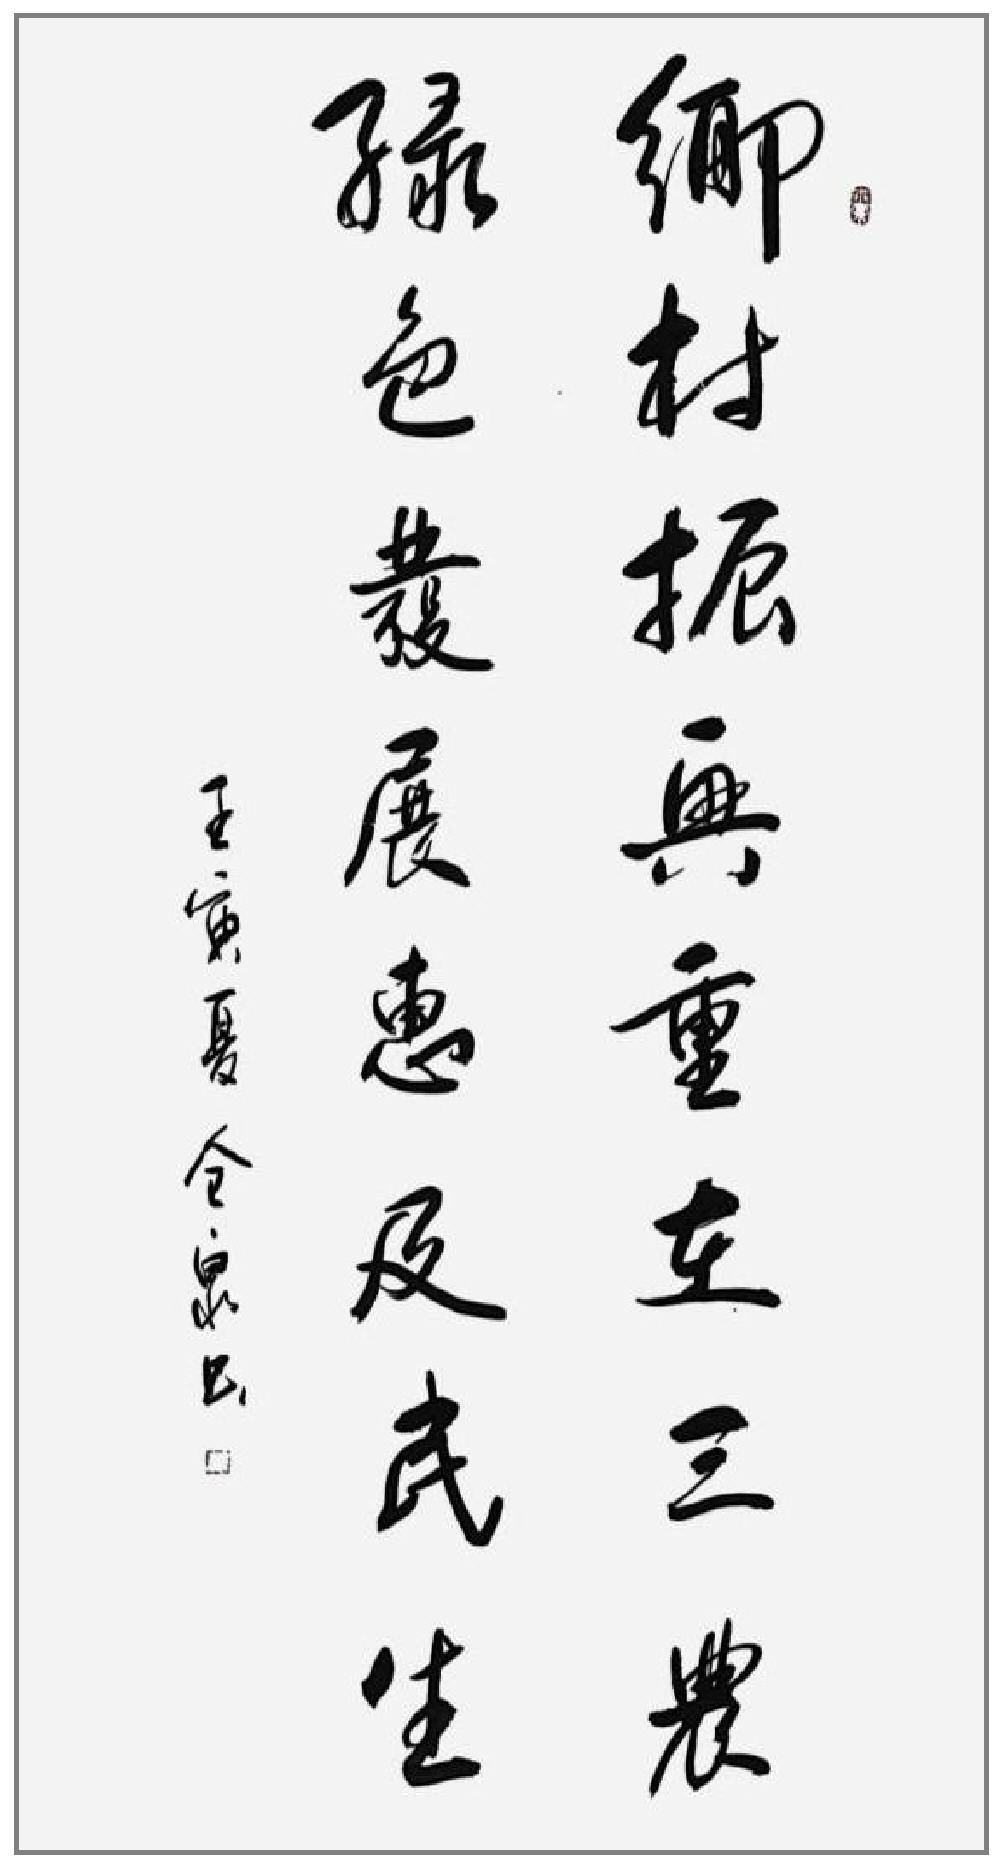 鄉村振興重在三農
綠色發展惠及民生
壬寅夏全泉书